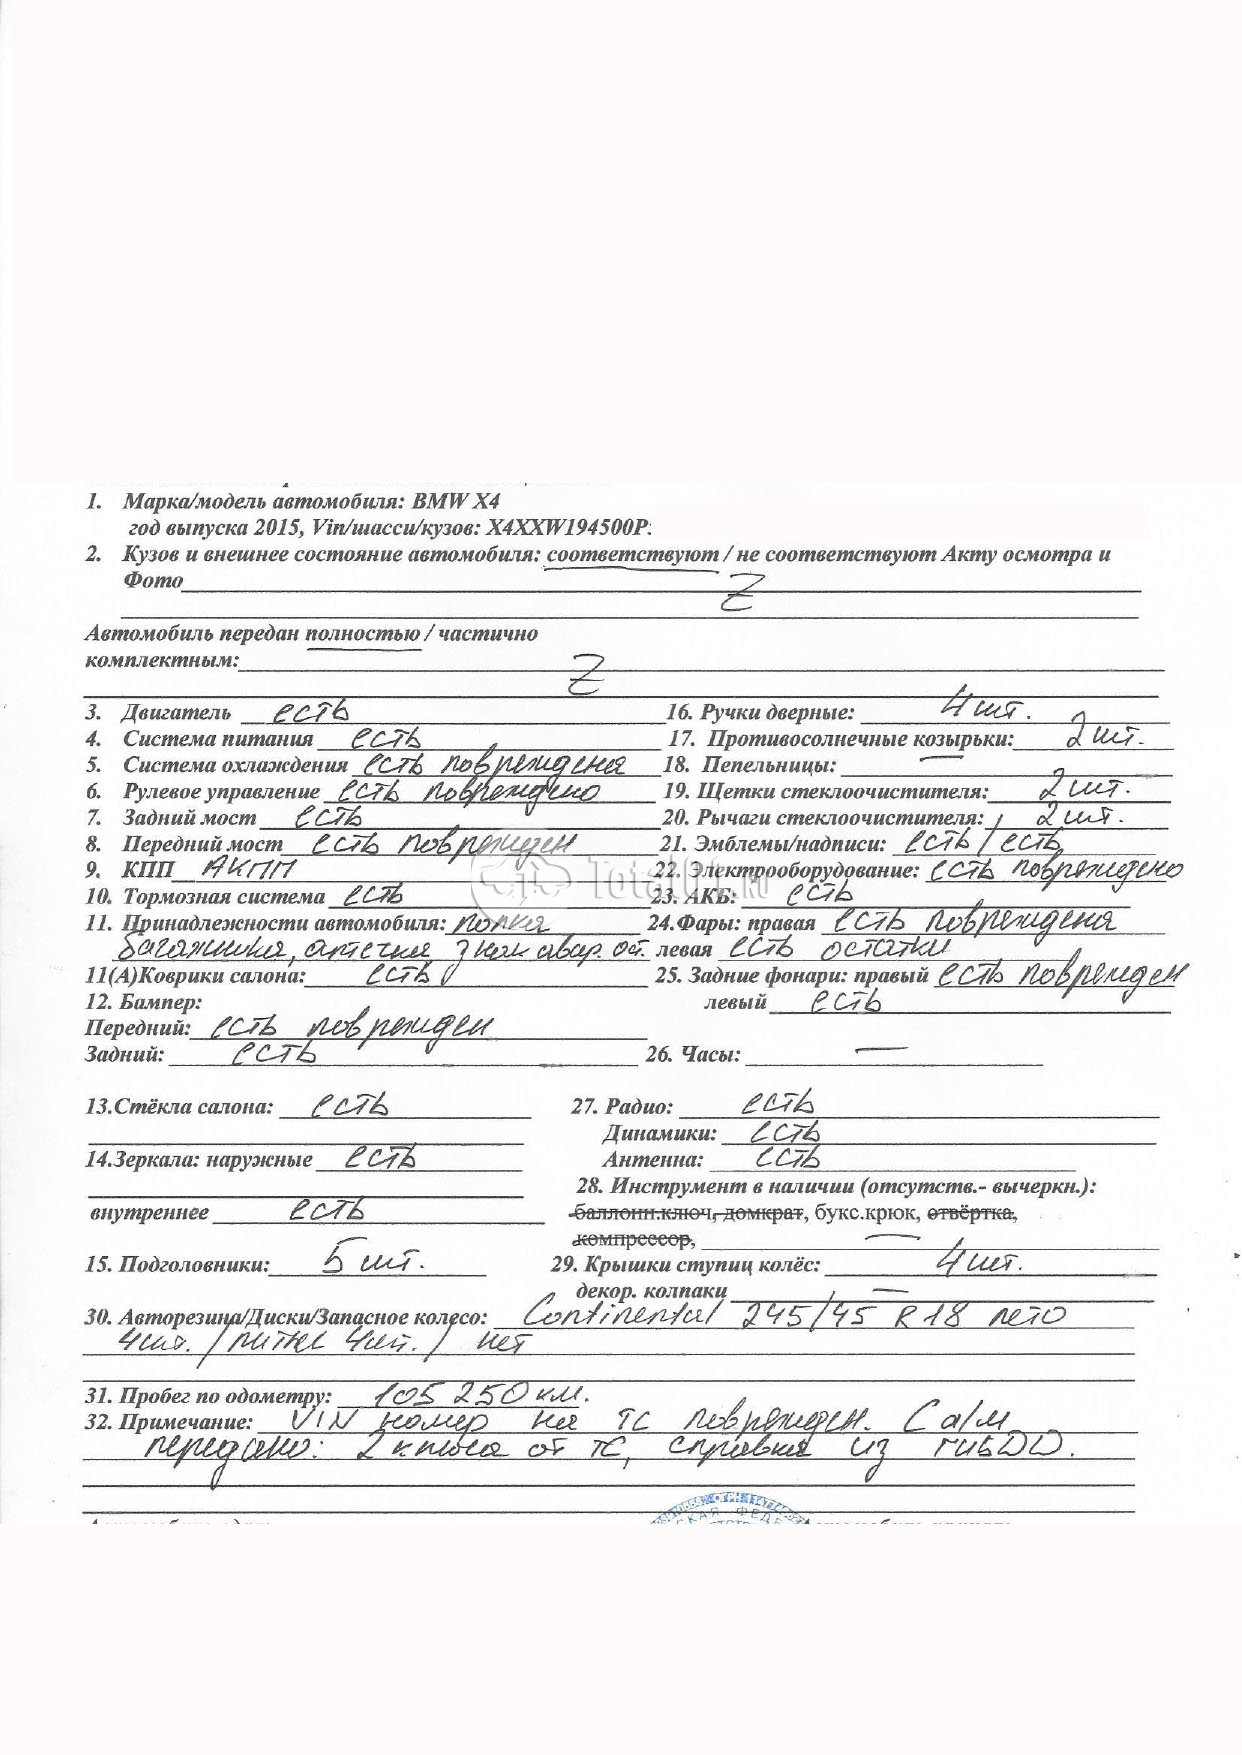 1. Марка/модель автомобиля: BMW X4
год выпуска 2015, Vin/шасси/кузов: X4XXW194500P
2. Кузов и внешнее состояние автомобиля: соответствуют / не соответствуют Акту осмотра и
Фото Z
Автомобиль передан полностью / частично
комплектным: Z
3. Двигатель есть 16. Ручки дверные: 4 шт.
4. Система питания есть 17. Противосолнечные козырьки: 2 шт.
5. Система охлаждения есть повреждена 18. Пепельницы: —
6. Рулевое управление есть повреждено 19. Щетки стеклоочистителя: 2 шт.
7. Задний мост есть 20. Рычаги стеклоочистителя: 2 шт.
8. Передний мост есть поврежден 21. Эмблемы/надписи: есть / есть
9. КПП АКПП 22. Электрооборудование: есть повреждено
10. Тормозная система есть 23. АКБ: есть
11. Принадлежности автомобиля: полка 24.Фары: правая есть повреждена
багажника, аптечка знак авар. ост. левая есть остатки
11(А)Коврики салона: есть 25. Задние фонари: правый есть поврежден
12. Бампер: левый есть
Передний: есть поврежден
Задний: есть 26. Часы: —
13.Стёкла салона: есть 27. Радио: есть
Динамики: есть
14.Зеркала: наружные есть Антенна: есть
28. Инструмент в наличии (отсутств.- вычеркн.):
внутреннее есть баллонн.ключ, домкрат, букс.крюк, отвёртка,
компрессор, —
15. Подголовники: 5 шт. 29. Крышки ступиц колёс: 4 шт.
декор. колпаки —
30. Авторезина/Диски/Запасное колесо: Continental 245/45 R 18 лето
4 шт. / литье 4 шт. / нет
31. Пробег по одометру: 105 250 км.
32. Примечание: VIN номер на ТС поврежден. С а/м
передано: 2 ключа от ТС, справка из ГИБДД.
Total01.ru